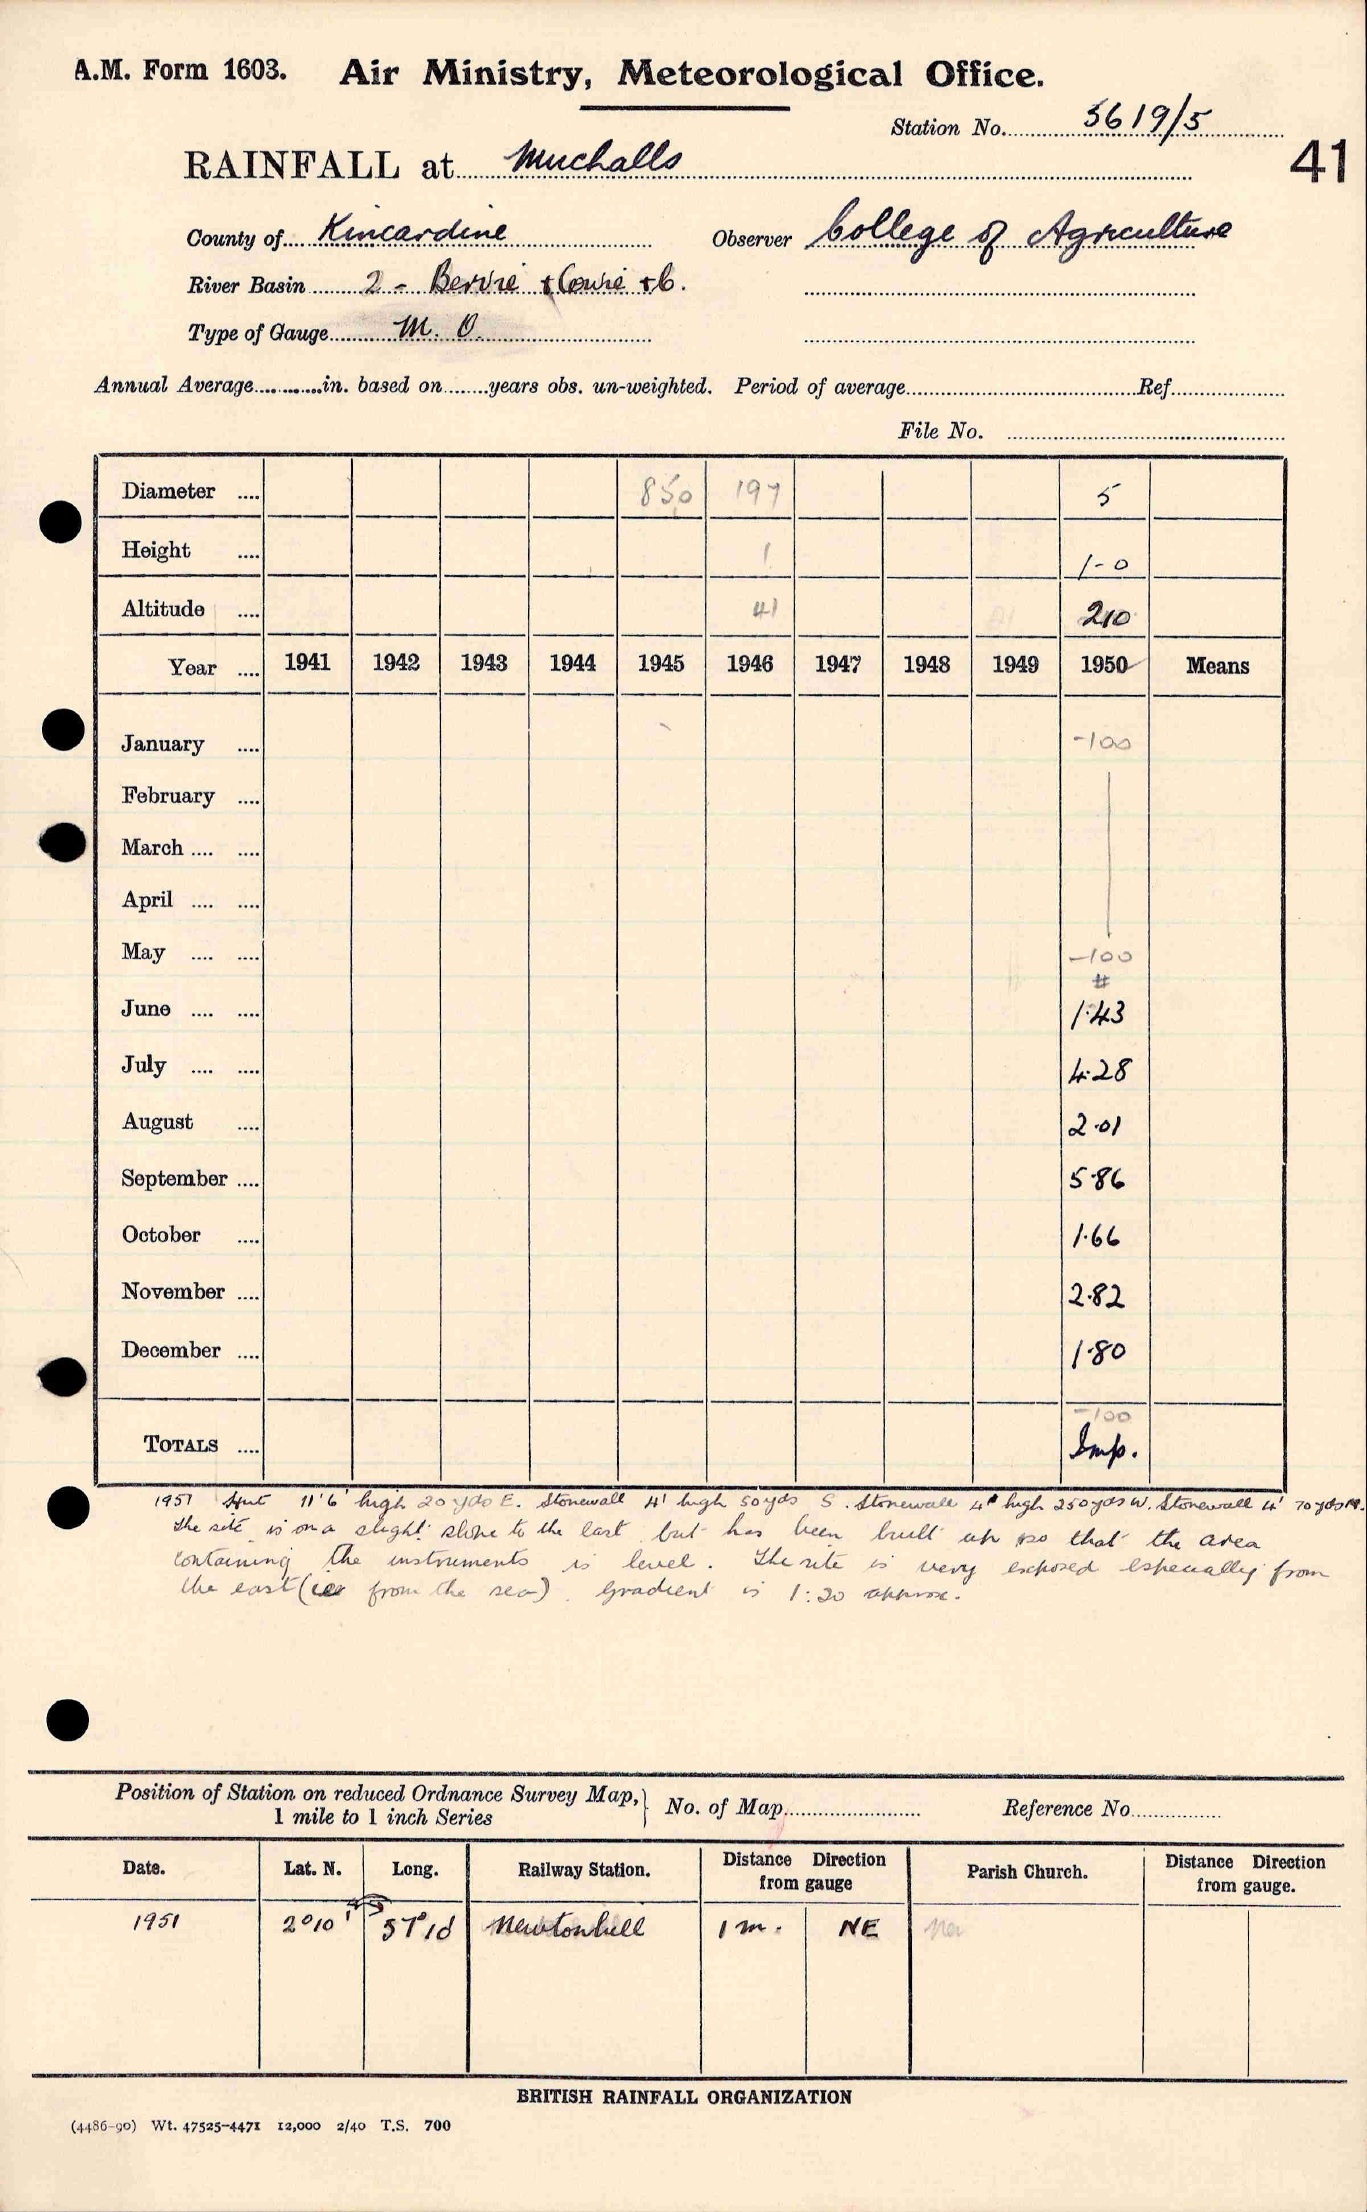 A.M. Form 1603. Air Ministry, Meteorological Office.
Station No. 5619/5
41
RAINFALL at Muchalls
County of Kincardine Observer College of Agriculture
River Basin 2 - Bervie + Cowie + C.
Type of Gauge M. O.
Annual Average in. based on years obs. un-weighted. Period of average Ref
File No.
Diameter 850 197 5
Height 1 1-0
Altitude 41 210
Year 1941 1942 1943 1944 1945 1946 1947 1948 1949 1950 Means
January -100
February
March
April
May -100
#
June 1.43
July 4.28
August 2.01
September 5.86
October 1.66
November 2.82
December 1.80
-100
TOTALS Imp.
1951 Hut 11'6" high 20 yds E. Stonewall 4' high 50 yds S. Stonewall 4' high 250 yds W. Stonewall 4' 70 yds N.
The site is on a slight slope to the east but has been built up so that the area
containing the instruments is level. The site is very exposed especially from
the east (ie from the sea). Gradient is 1:20 approx.
Position of Station on reduced Ordnance Survey Map, 1 mile to 1 inch Series } No. of Map Reference No
Date. Lat. N. Long. Railway Station. Distance Direction from gauge Parish Church. Distance Direction from gauge.
1951 2°10' 57°1' Newtonhill 1 m. NE
BRITISH RAINFALL ORGANIZATION
(4486-90) Wt. 47525-4471 12,000 2/40 T.S. 700